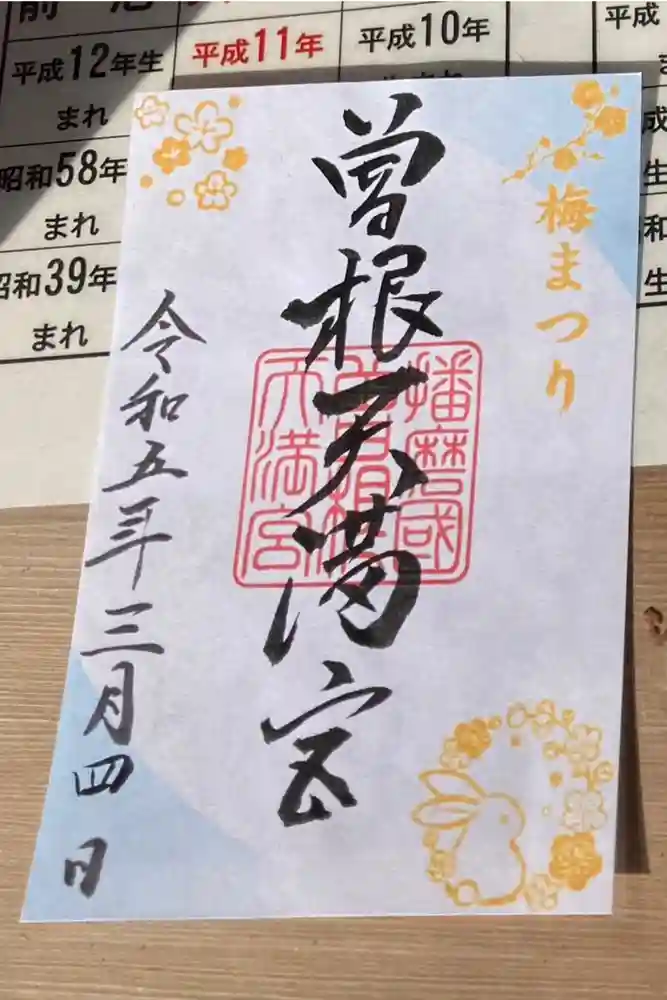 平成12年生
まれ
昭和58年
まれ
昭和39年
まれ
平成11年
平成10年
平成
梅まつり
曽根天満宮
播磨国
曽根
天満宮
令和五年三月四日